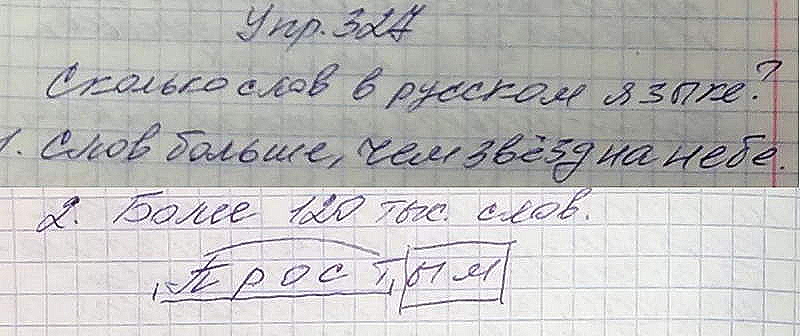 Упр. 327
Сколько слов в русском языке?
1. Слов больше, чем звёзд на небе.
2. Более 120 тыс. слов.
простым